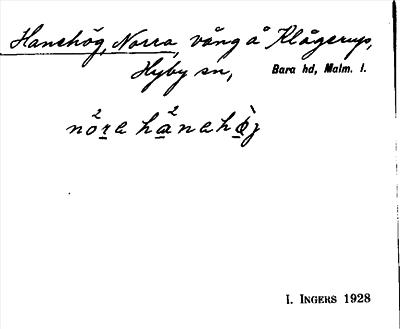 Hanehög, Norra, vång å Klågerup,
Hyby sn, Bara hd, Malm. l.
nora hanahög
I. INGERS 1928